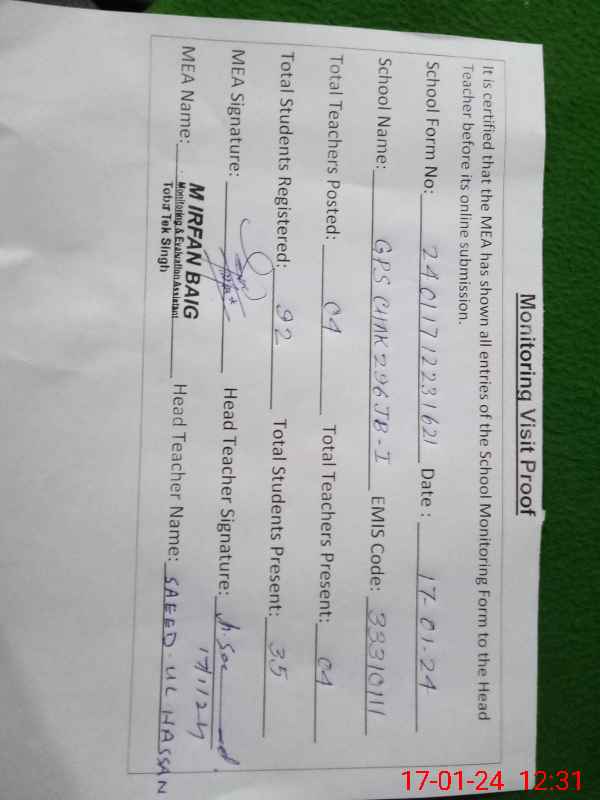 Monitoring Visit Proof
It is certified that the MEA has shown all entries of the School Monitoring Form to the Head
Teacher before its online submission.
School Form No: 24011712231621 Date : 17-01-24
School Name: GPS CHAK 296 JB-I EMIS Code: 33310111
Total Teachers Posted: 04 Total Teachers Present: 04
Total Students Registered: 92 Total Students Present: 35
MEA Signature: Head Teacher Signature:
17/1/24
MEA Name: M IRFAN BAIG Head Teacher Name: SAEED-UL HASSAN
Monitoring & Evaluation Assistant
Toba Tek Singh
17-01-24 12:31